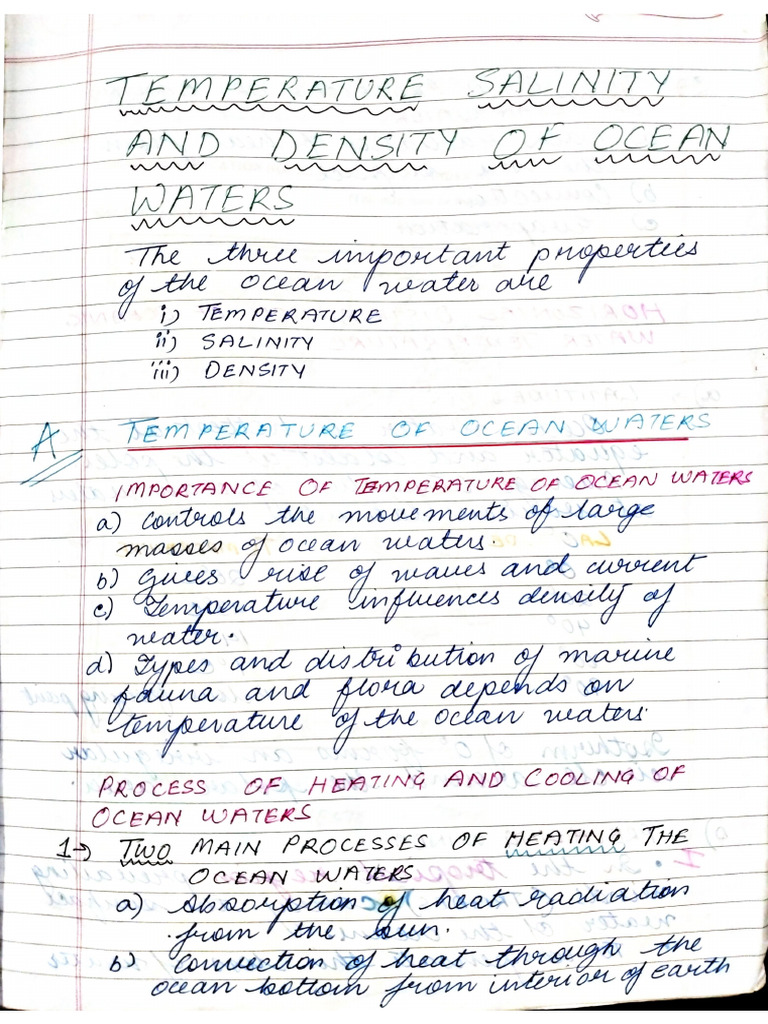 TEMPERATURE SALINITY
AND DENSITY OF OCEAN
WATERS
The three important properties
of the ocean water are
i) TEMPERATURE
ii) SALINITY
iii) DENSITY
A TEMPERATURE OF OCEAN WATERS
IMPORTANCE OF TEMPERATURE OF OCEAN WATERS
a) Controls the movements of large
masses of ocean waters.
b) Gives rise of waves and current
c) Temperature influences density of
water.
d) Types and distribution of marine
fauna and flora depends on
temperature of the ocean waters.
PROCESS OF HEATING AND COOLING OF
OCEAN WATERS
1→ TWO MAIN PROCESSES OF HEATING THE
OCEAN WATERS
a) Absorption of heat radiation
from the sun.
b) Convection of heat through the
ocean bottom from interior of earth